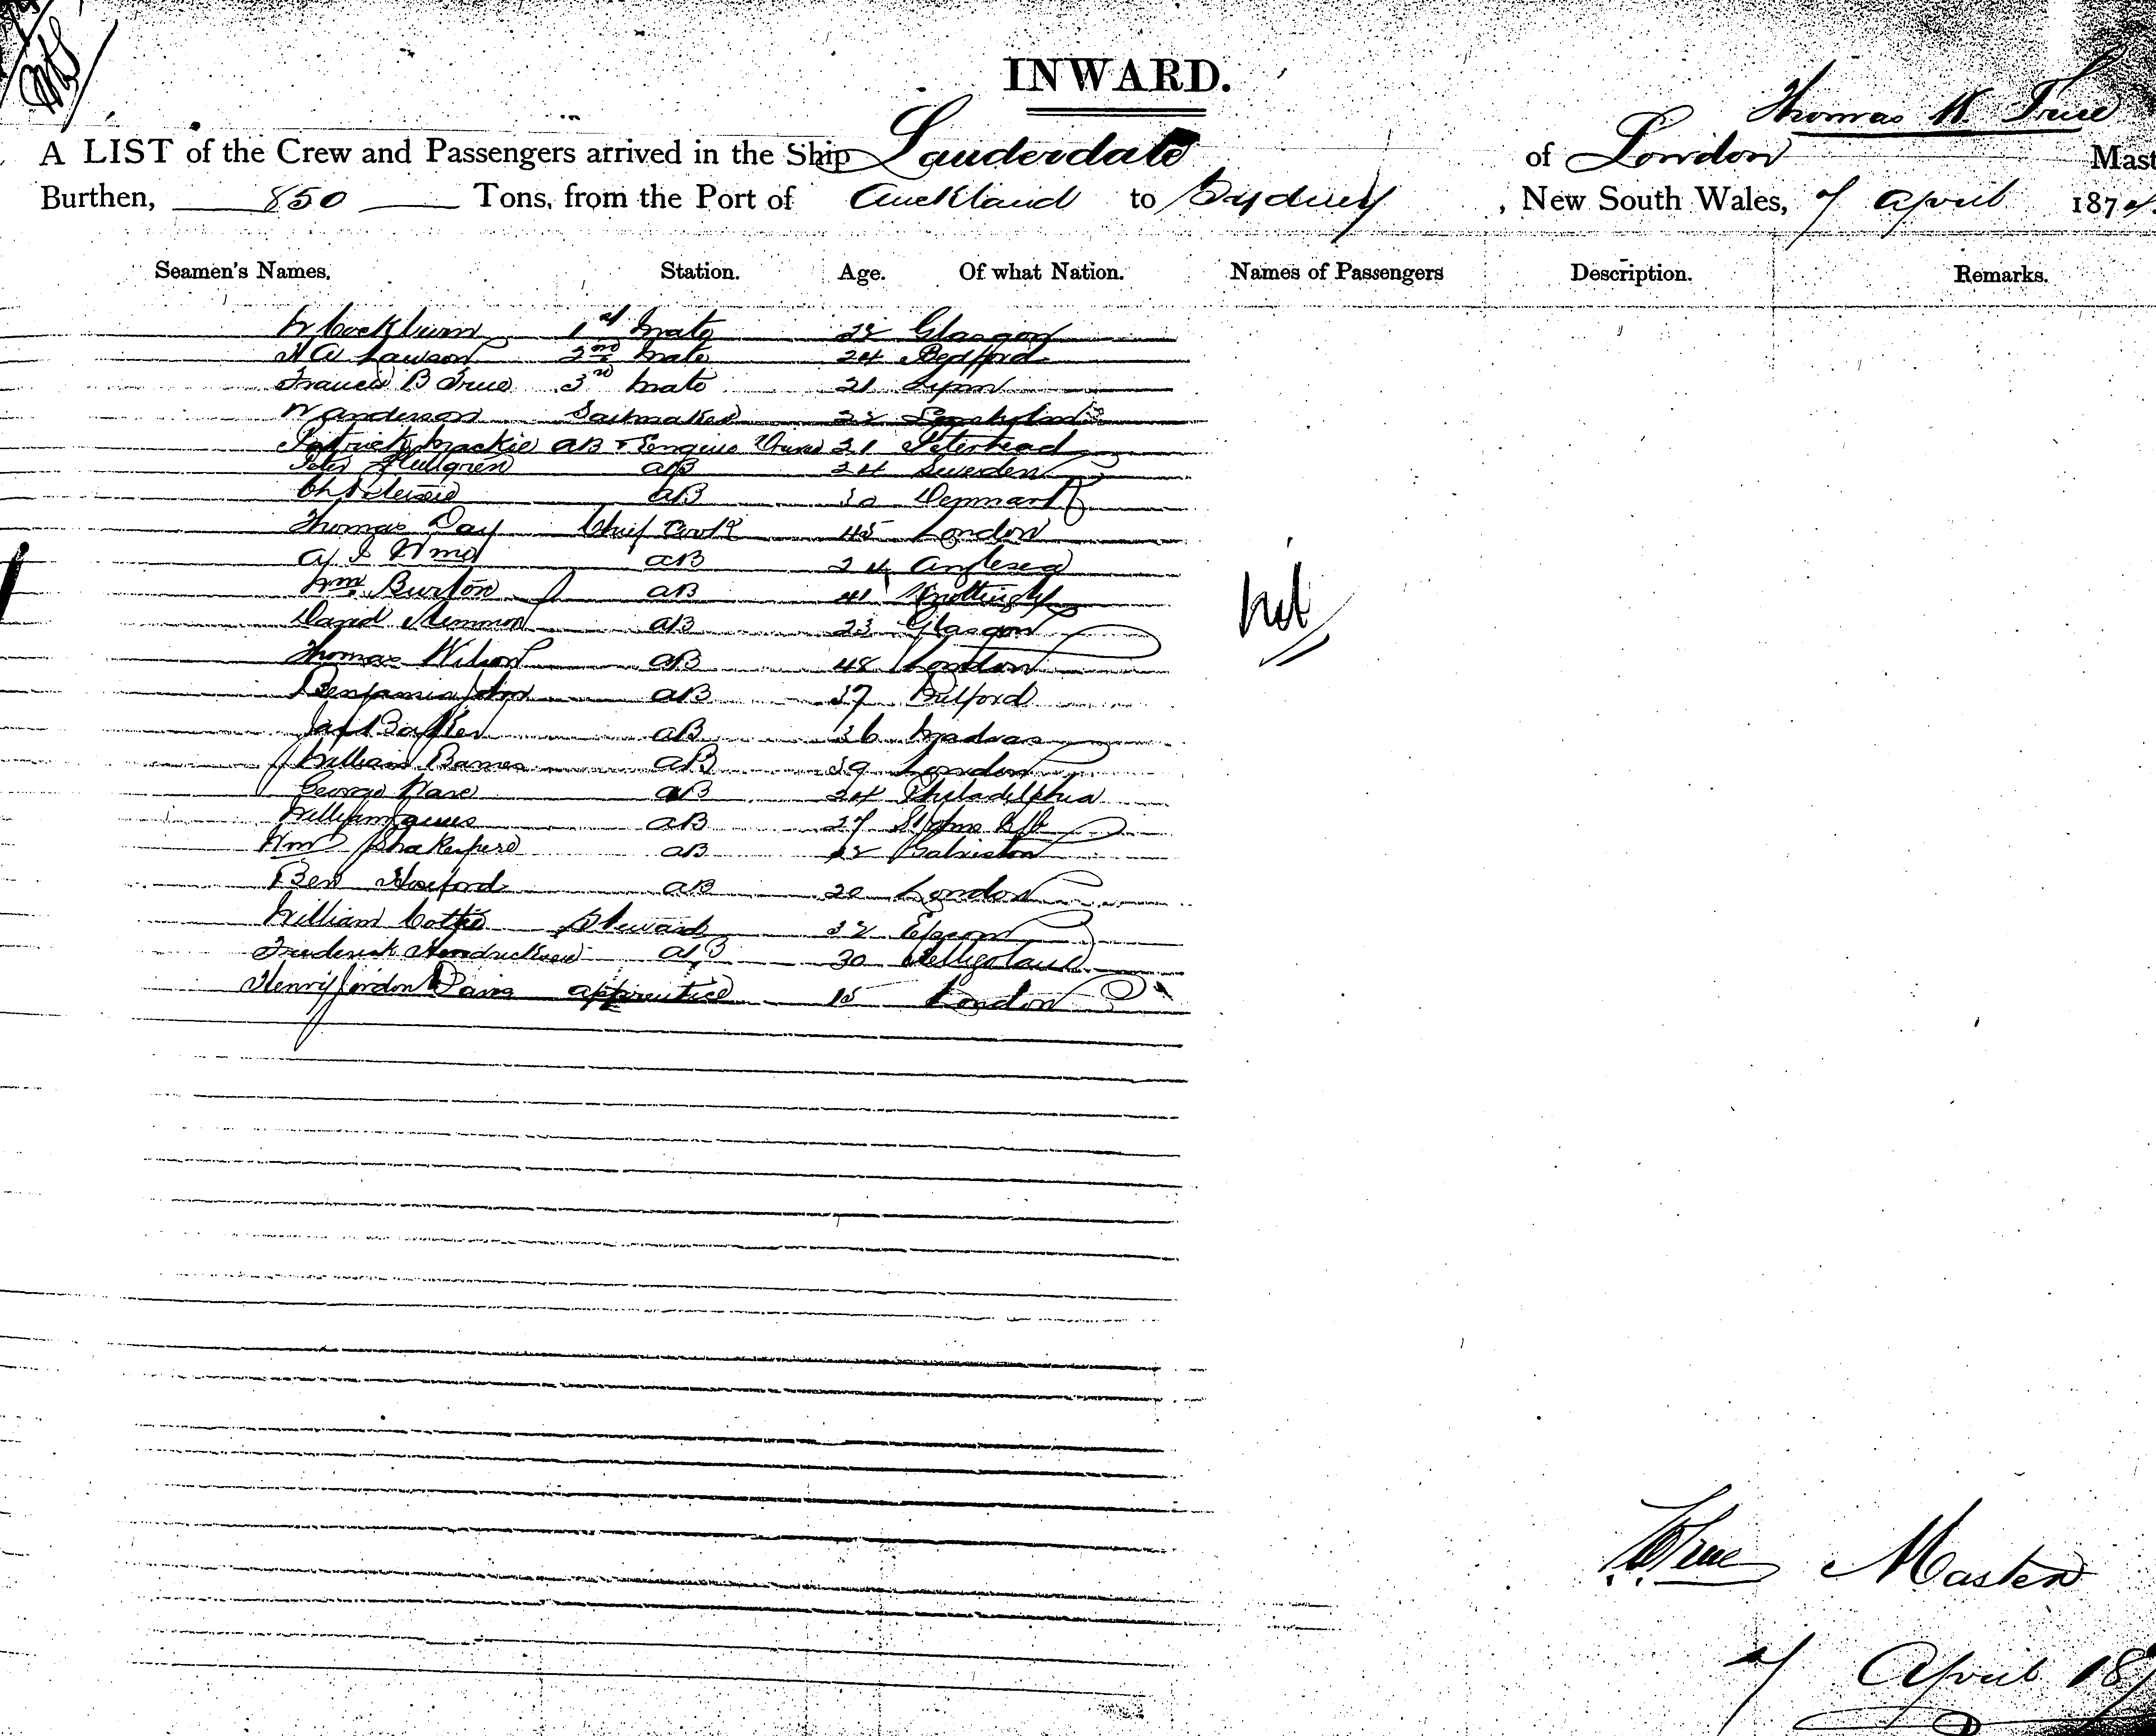 INWARD.
Thomas W True
A LIST of the Crew and Passengers arrived in the Ship Lauderdale of London Mast
Burthen, 850 Tons, from the Port of Auckland to Sydney, New South Wales, 7 April 187
Seamen's Names. Station. Age. Of what Nation. Names of Passengers Description. Remarks.
W Cockburn 1st Mate Glasgow
Lawson 2nd Mate 24 Bedford
Francis B True 3rd Mate 21 Lynn
W Anderson Sailmaker
Patrick Mackie AB & Engine Driver 21 Peterhead
Peter Hullgren AB 24 Sweden
AB 30 Denmark
Thomas Day Chief Cook 45 London
AB 24 Anglesea
Wm. Burton AB 41 Knottingly
David AB 23 Glasgow
Thomas Wilson AB 48 London
Benjamin John AB 37 Milford
AB 36 Madras
William Barnes AB 39 London
George AB 24 Philadelphia
William AB 27 St Johns
Wm Shakespere AB Galveston
Ben AB 20 London
William Steward Epsom
Frederick Hendricksen AB 30 Helligoland
Henry Jordon Davis Apprentice 15 London
Nil
True Master
7 April 187